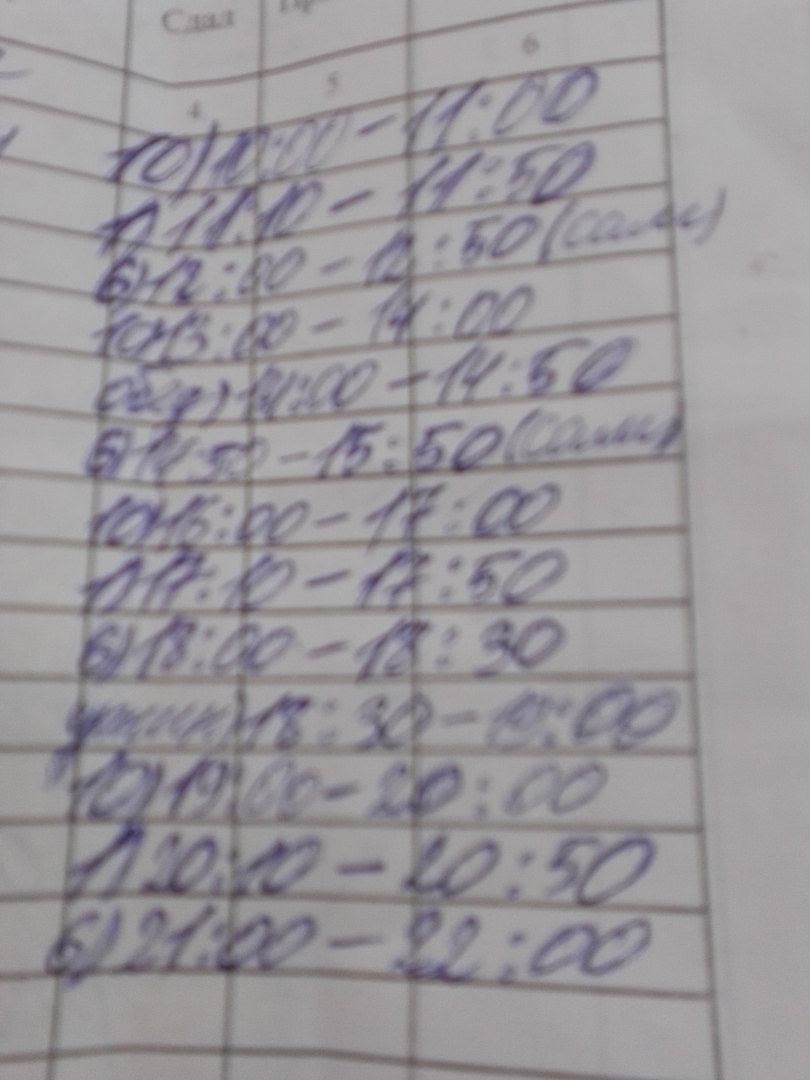 Сдал
4 5 6
10) 10:00 - 11:00
1) 11:10 - 11:50
6) 12:00 - 12:50 (сами)
10) 13:00 - 14:00
обед) 14:00 - 14:50
6) 14:50 - 15:50 (сами)
10) 16:00 - 17:00
1) 17:10 - 17:50
6) 18:00 - 18:30
ужин) 18:30 - 19:00
10) 19:00 - 20:00
1) 20:10 - 20:50
6) 21:00 - 22:00